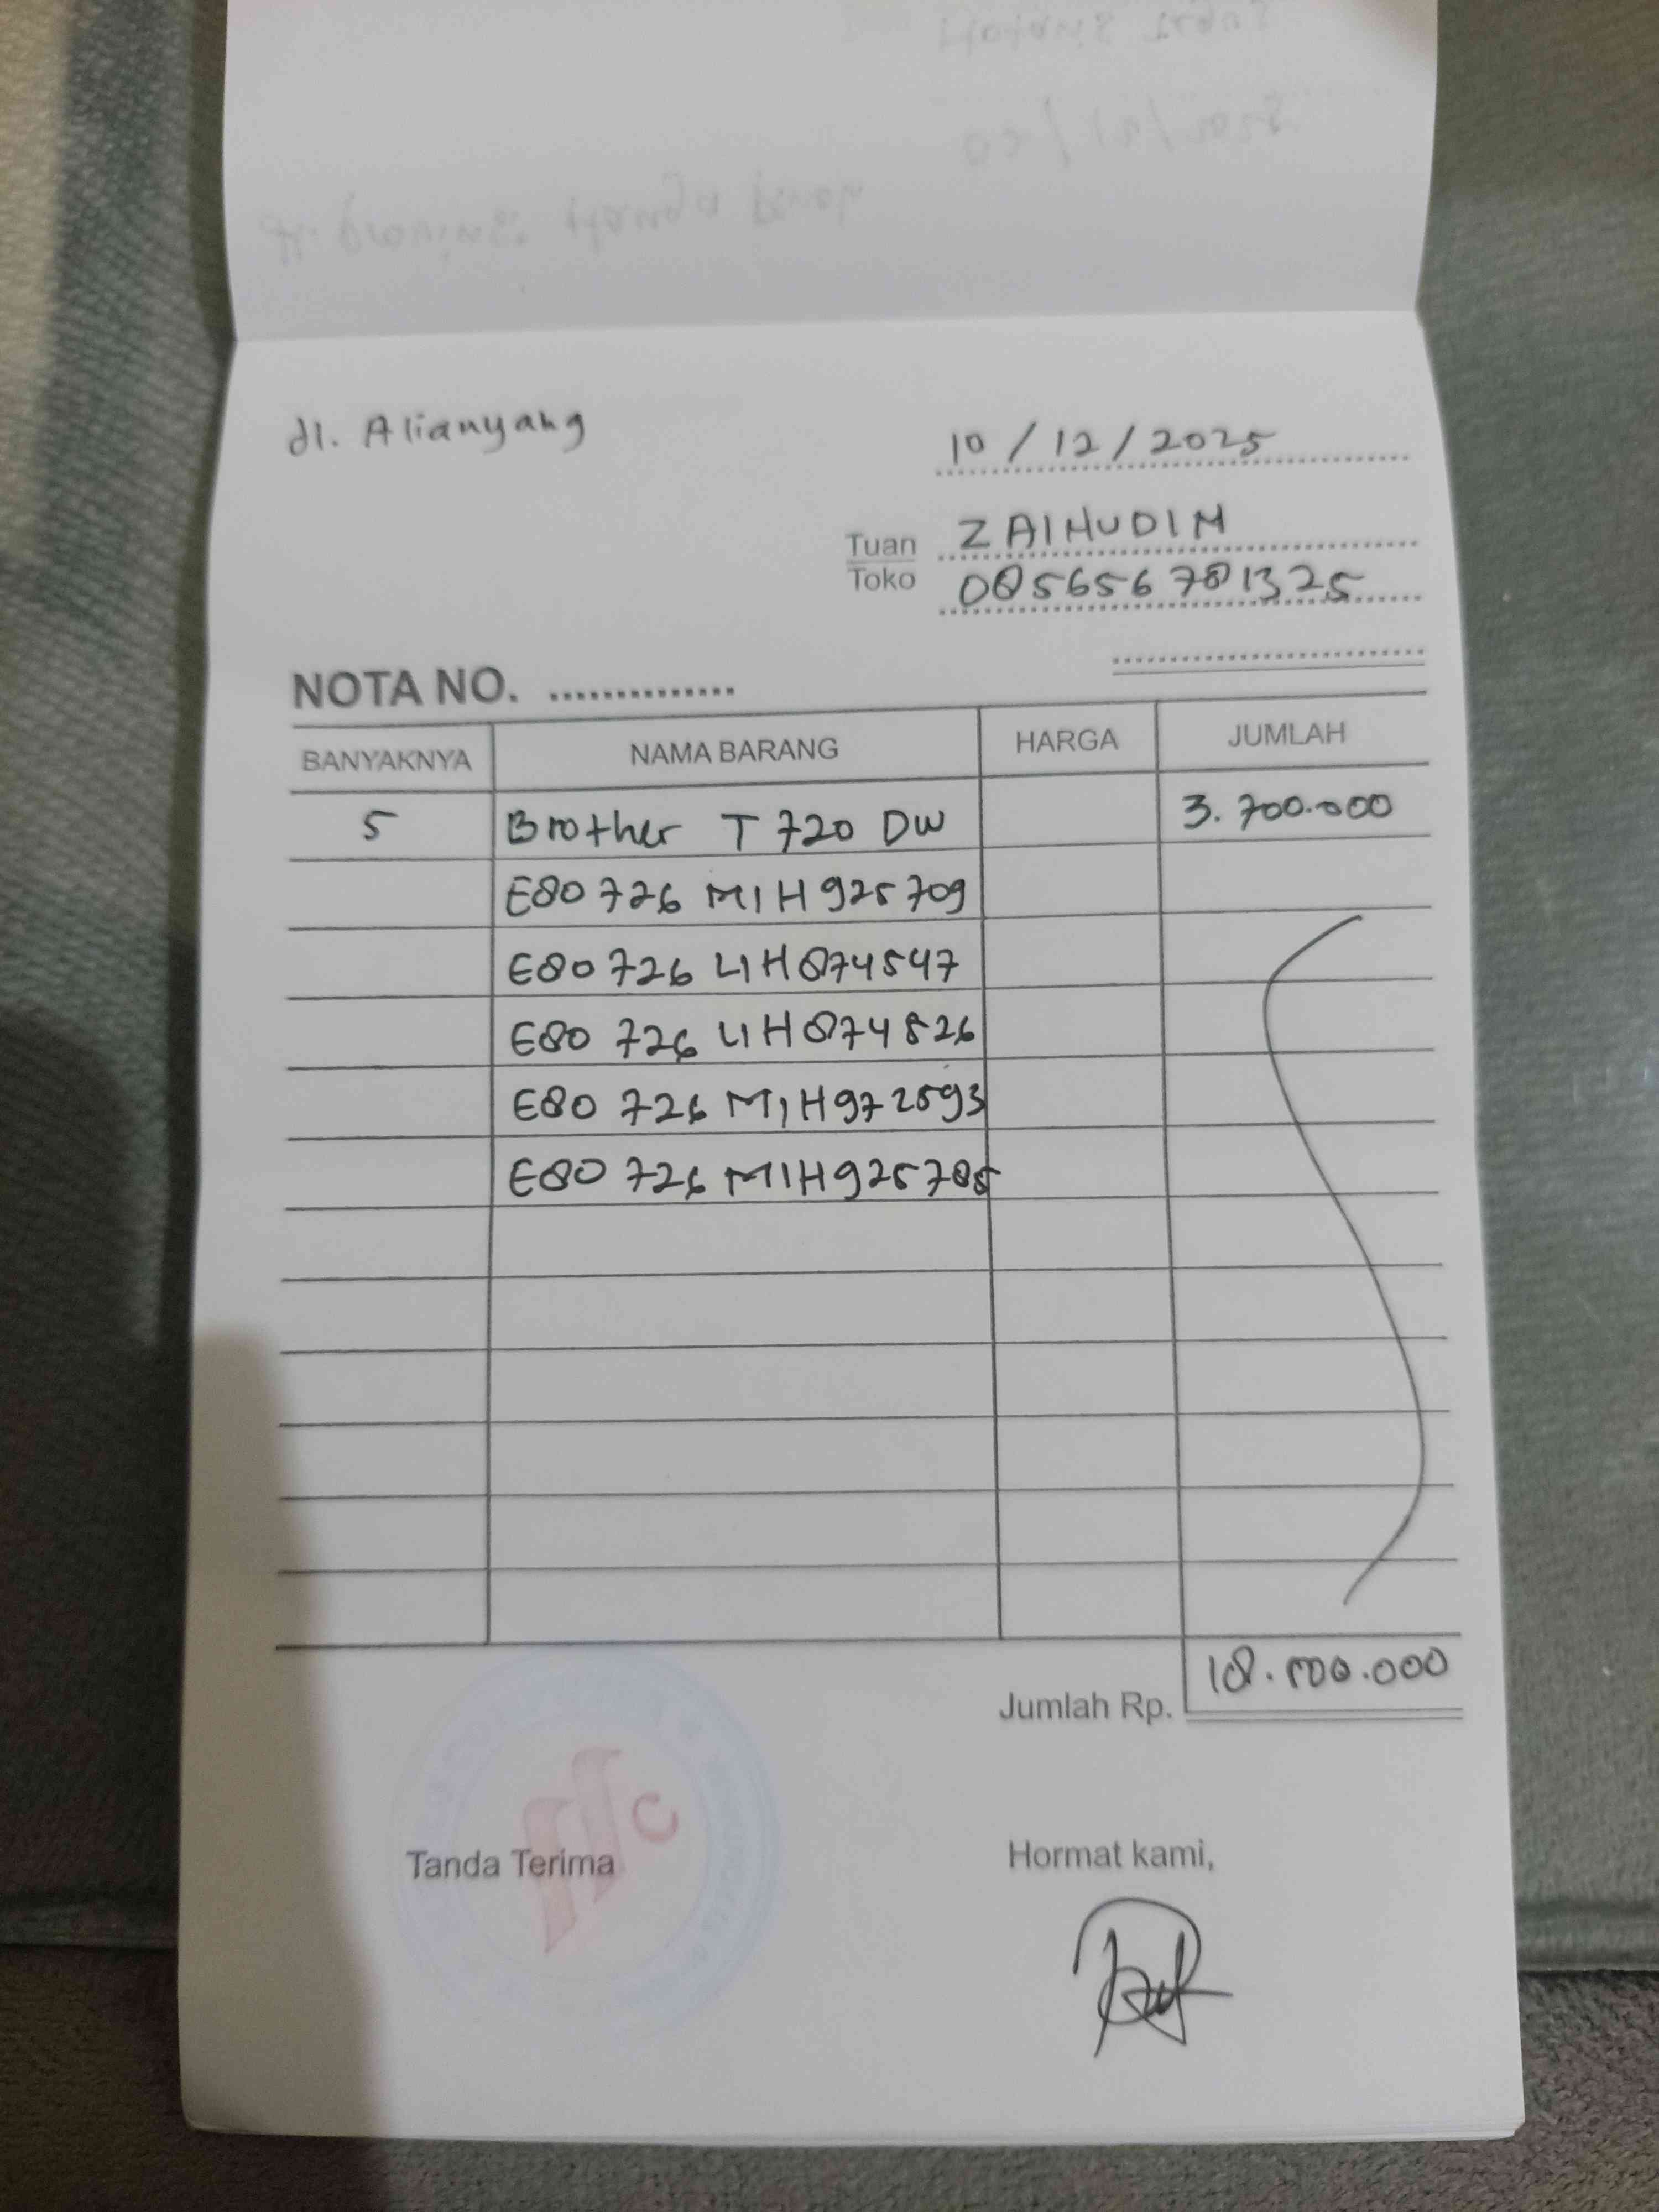 Jl. Alianyang
10/12/2025
Tuan ZAINUDIN
Toko 085656781325
NOTA NO. ..............
BANYAKNYA NAMA BARANG HARGA JUMLAH
5 Brother T720 DW 3.700.000
E80726M1H925709
E80726L1H874547
E80726L1H874826
E80726M1H972593
E80726M1H925785
Jumlah Rp. 18.500.000
Tanda Terima Hormat kami,